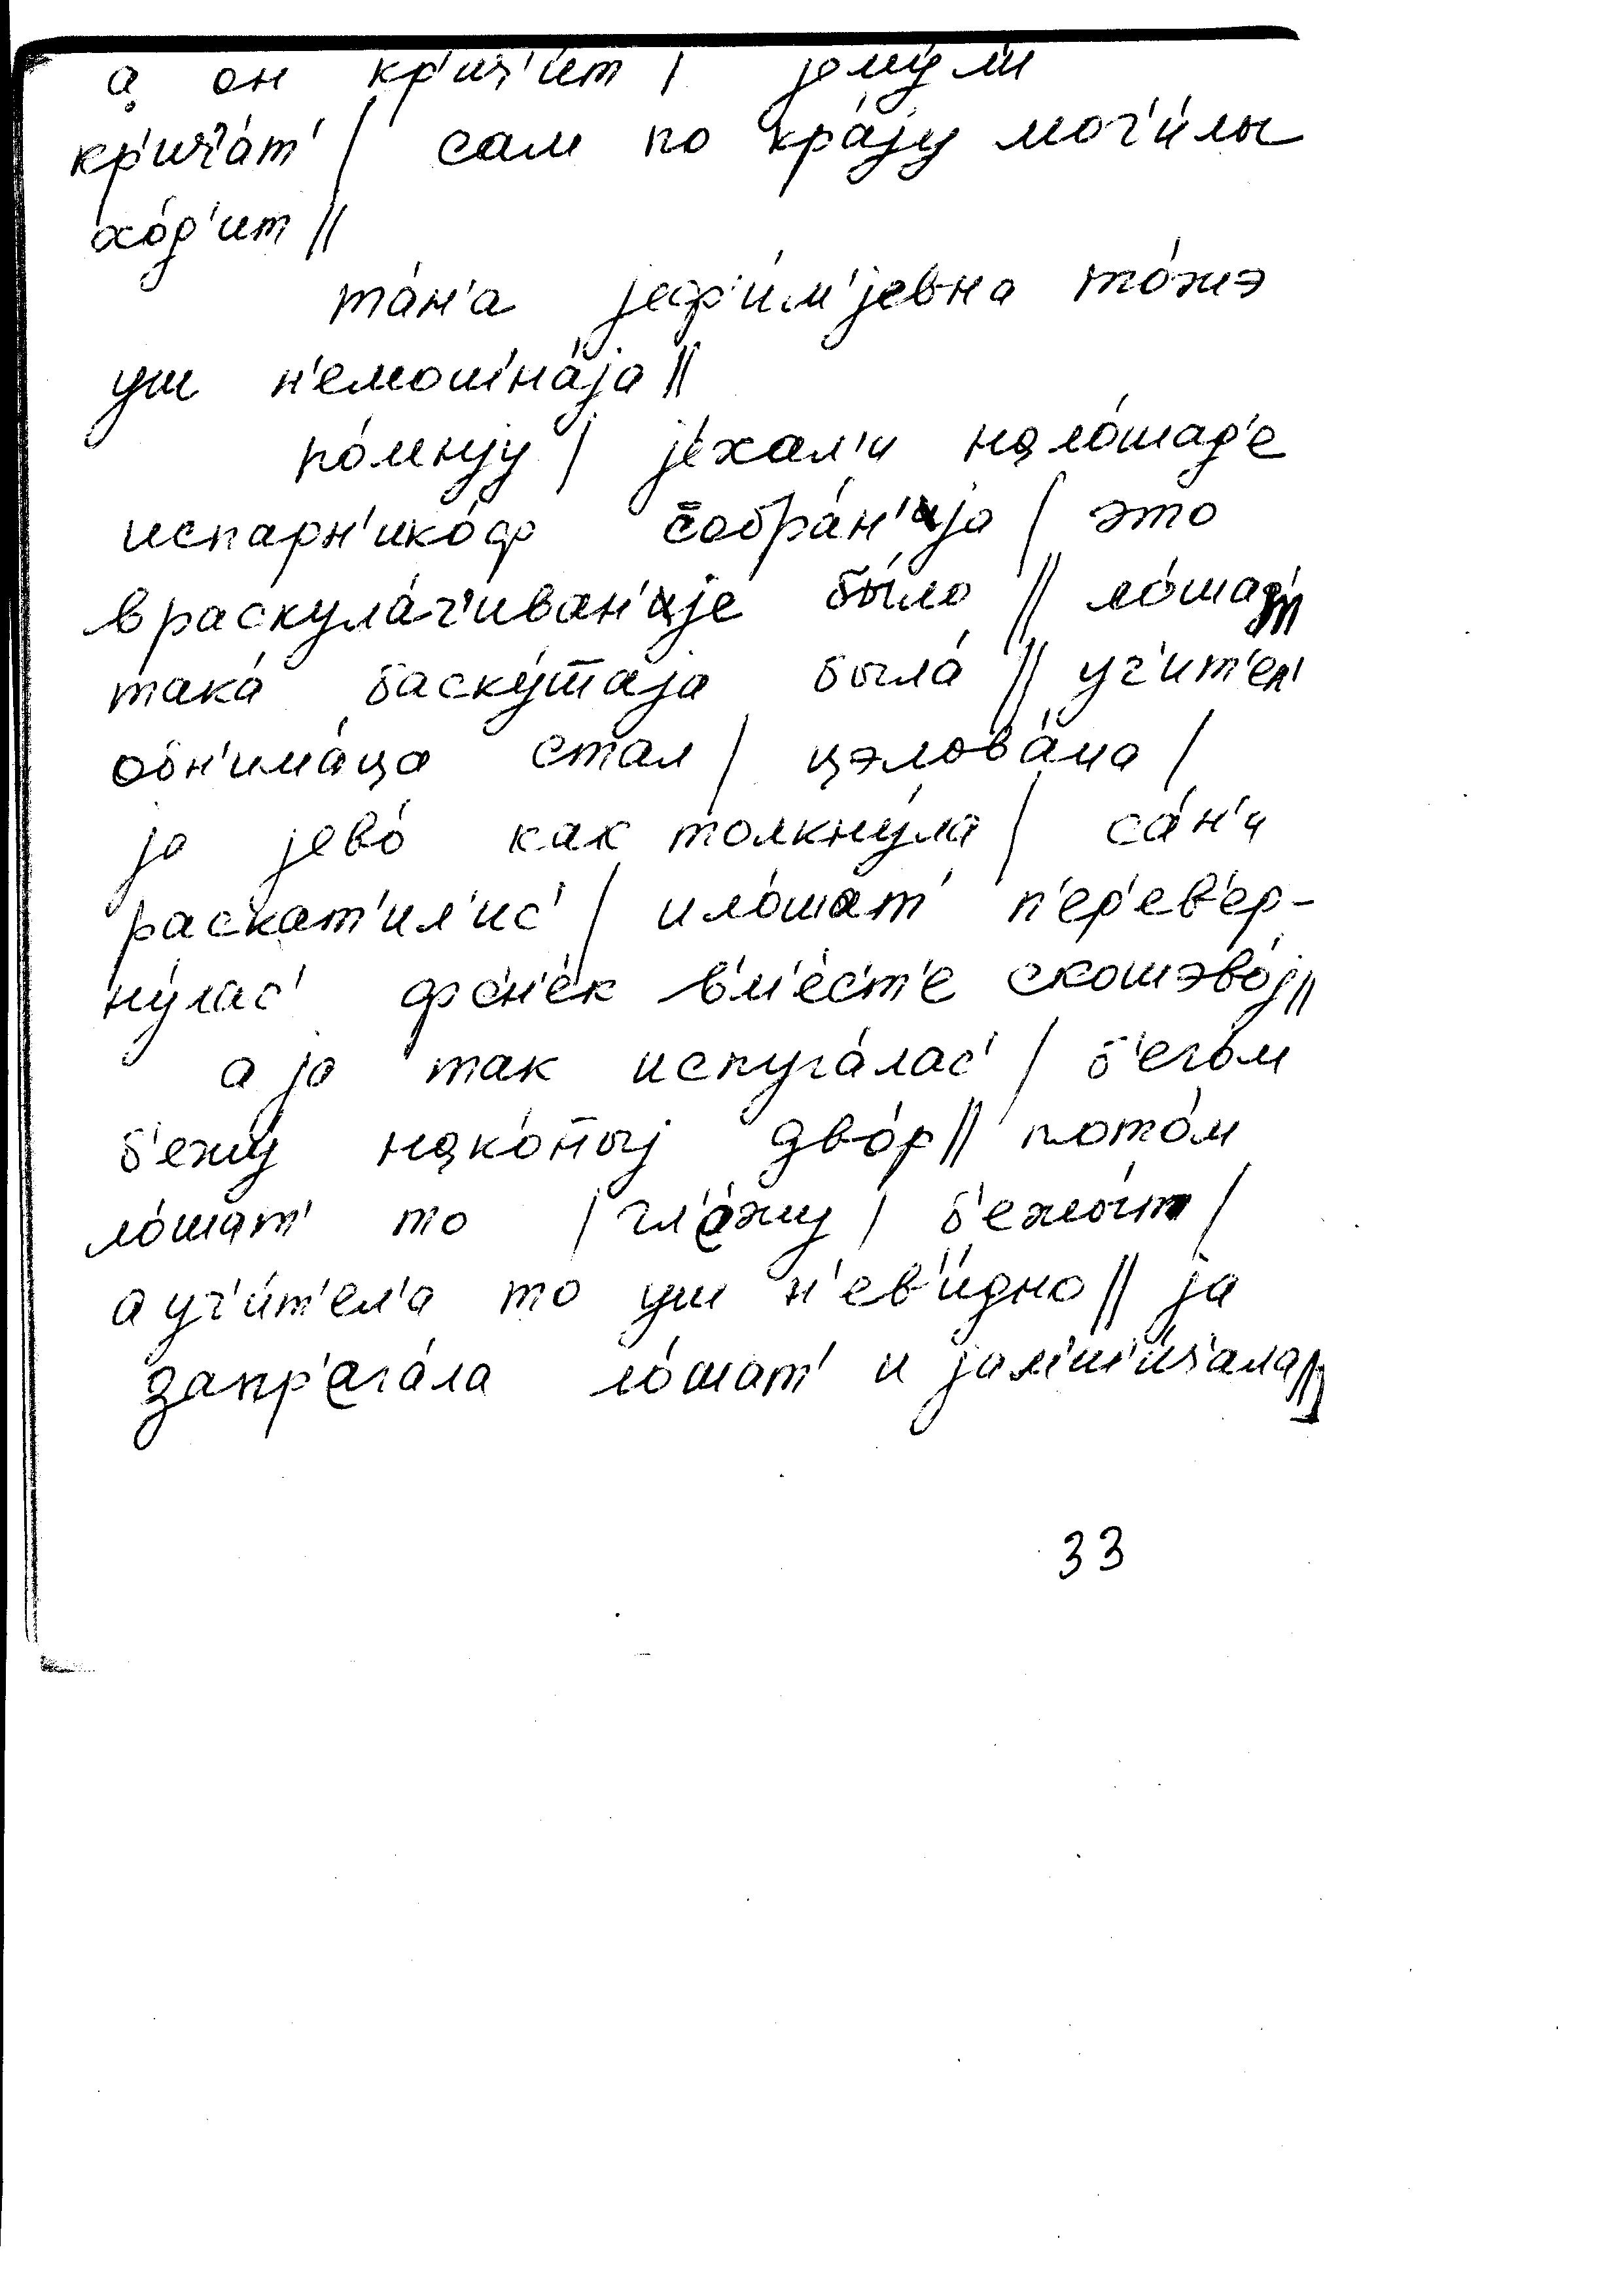 а он кр'ич'и́т / јему́ л'и
кр'ич'а́т' / сам по кра́ју мог'и́лы
хо́д'ит //
та́н'а јеф'и́м'јевна то́жэ
уш н'емош'на́ја //
по́мнју / је́хал'и нало́шад'е
испарн'ико́ф собра́н'ија / это
враскула́ч'иван'ије бы́ло // ло́шад'
така́ баску́шшаја была́ // уч'ит'ел'
обн'има́ца стал / цэлова́ца /
ја јево́ как толкну́ла / са́н'и
раскат'ил'ис' / ило́шат' п'ер'ев'ер-
ну́лас' фс'н'е́к вм'е́с'т'е скошэво́ј //
а ја так испуга́лас' / б'его́м
б'ежу́ нако́нныј дво́р // пото́м
ло́шат' то / гл'ажу́ / б'ежы́т /
а уч'и́т'ел'а то уш н'ев'и́дно // ја
запр'ага́ла ло́шат' и јамш'ш'и́ч'ала //
33